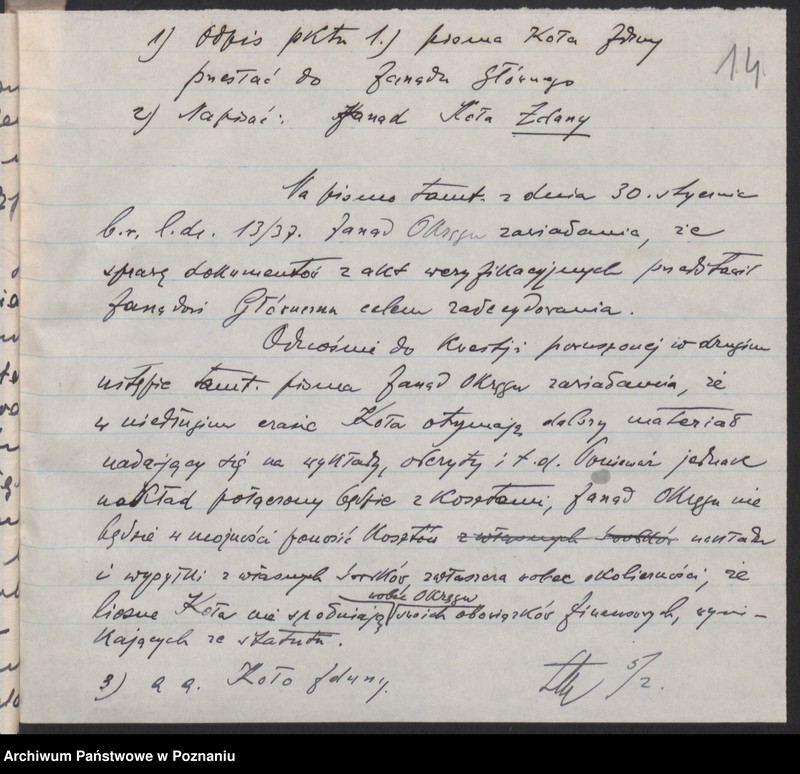 14.
1) Odpis pktu 1.) pisma Koła Zduny
przesłać do Zarządu Głównego
2) Napisać: Zarząd Koła Zduny
Na pismo tamt. z dnia 30. stycznia
b.r. l.dz. 13/37. Zarząd Okręgu zawiadamia, że
sprawę dokumentów z akt weryfikacyjnych przedstawił
Zarządowi Głównemu celem zadecydowania.
Odnośnie do kwestji poruszonej w drugim
ustępie tamt. pisma Zarząd Okręgu zawiadamia, że
w niedługim czasie Koła otrzymają dalszy materiał
nadający się na wykłady, odczyty i t.d. Ponieważ jednak
nakład połączony będzie z kosztami, Zarząd Okręgu nie
będzie w możności ponosić kosztów z własnych środków nakładu
i wysyłki z własnych środków, zwłaszcza wobec okoliczności, że
wobec Okręgu
liczne Koła nie spełniają swoich obowiązków finansowych, wyni-
kających ze statutu.
3) a a. Koło Zduny.
5/2.
Archiwum Państwowe w Poznaniu